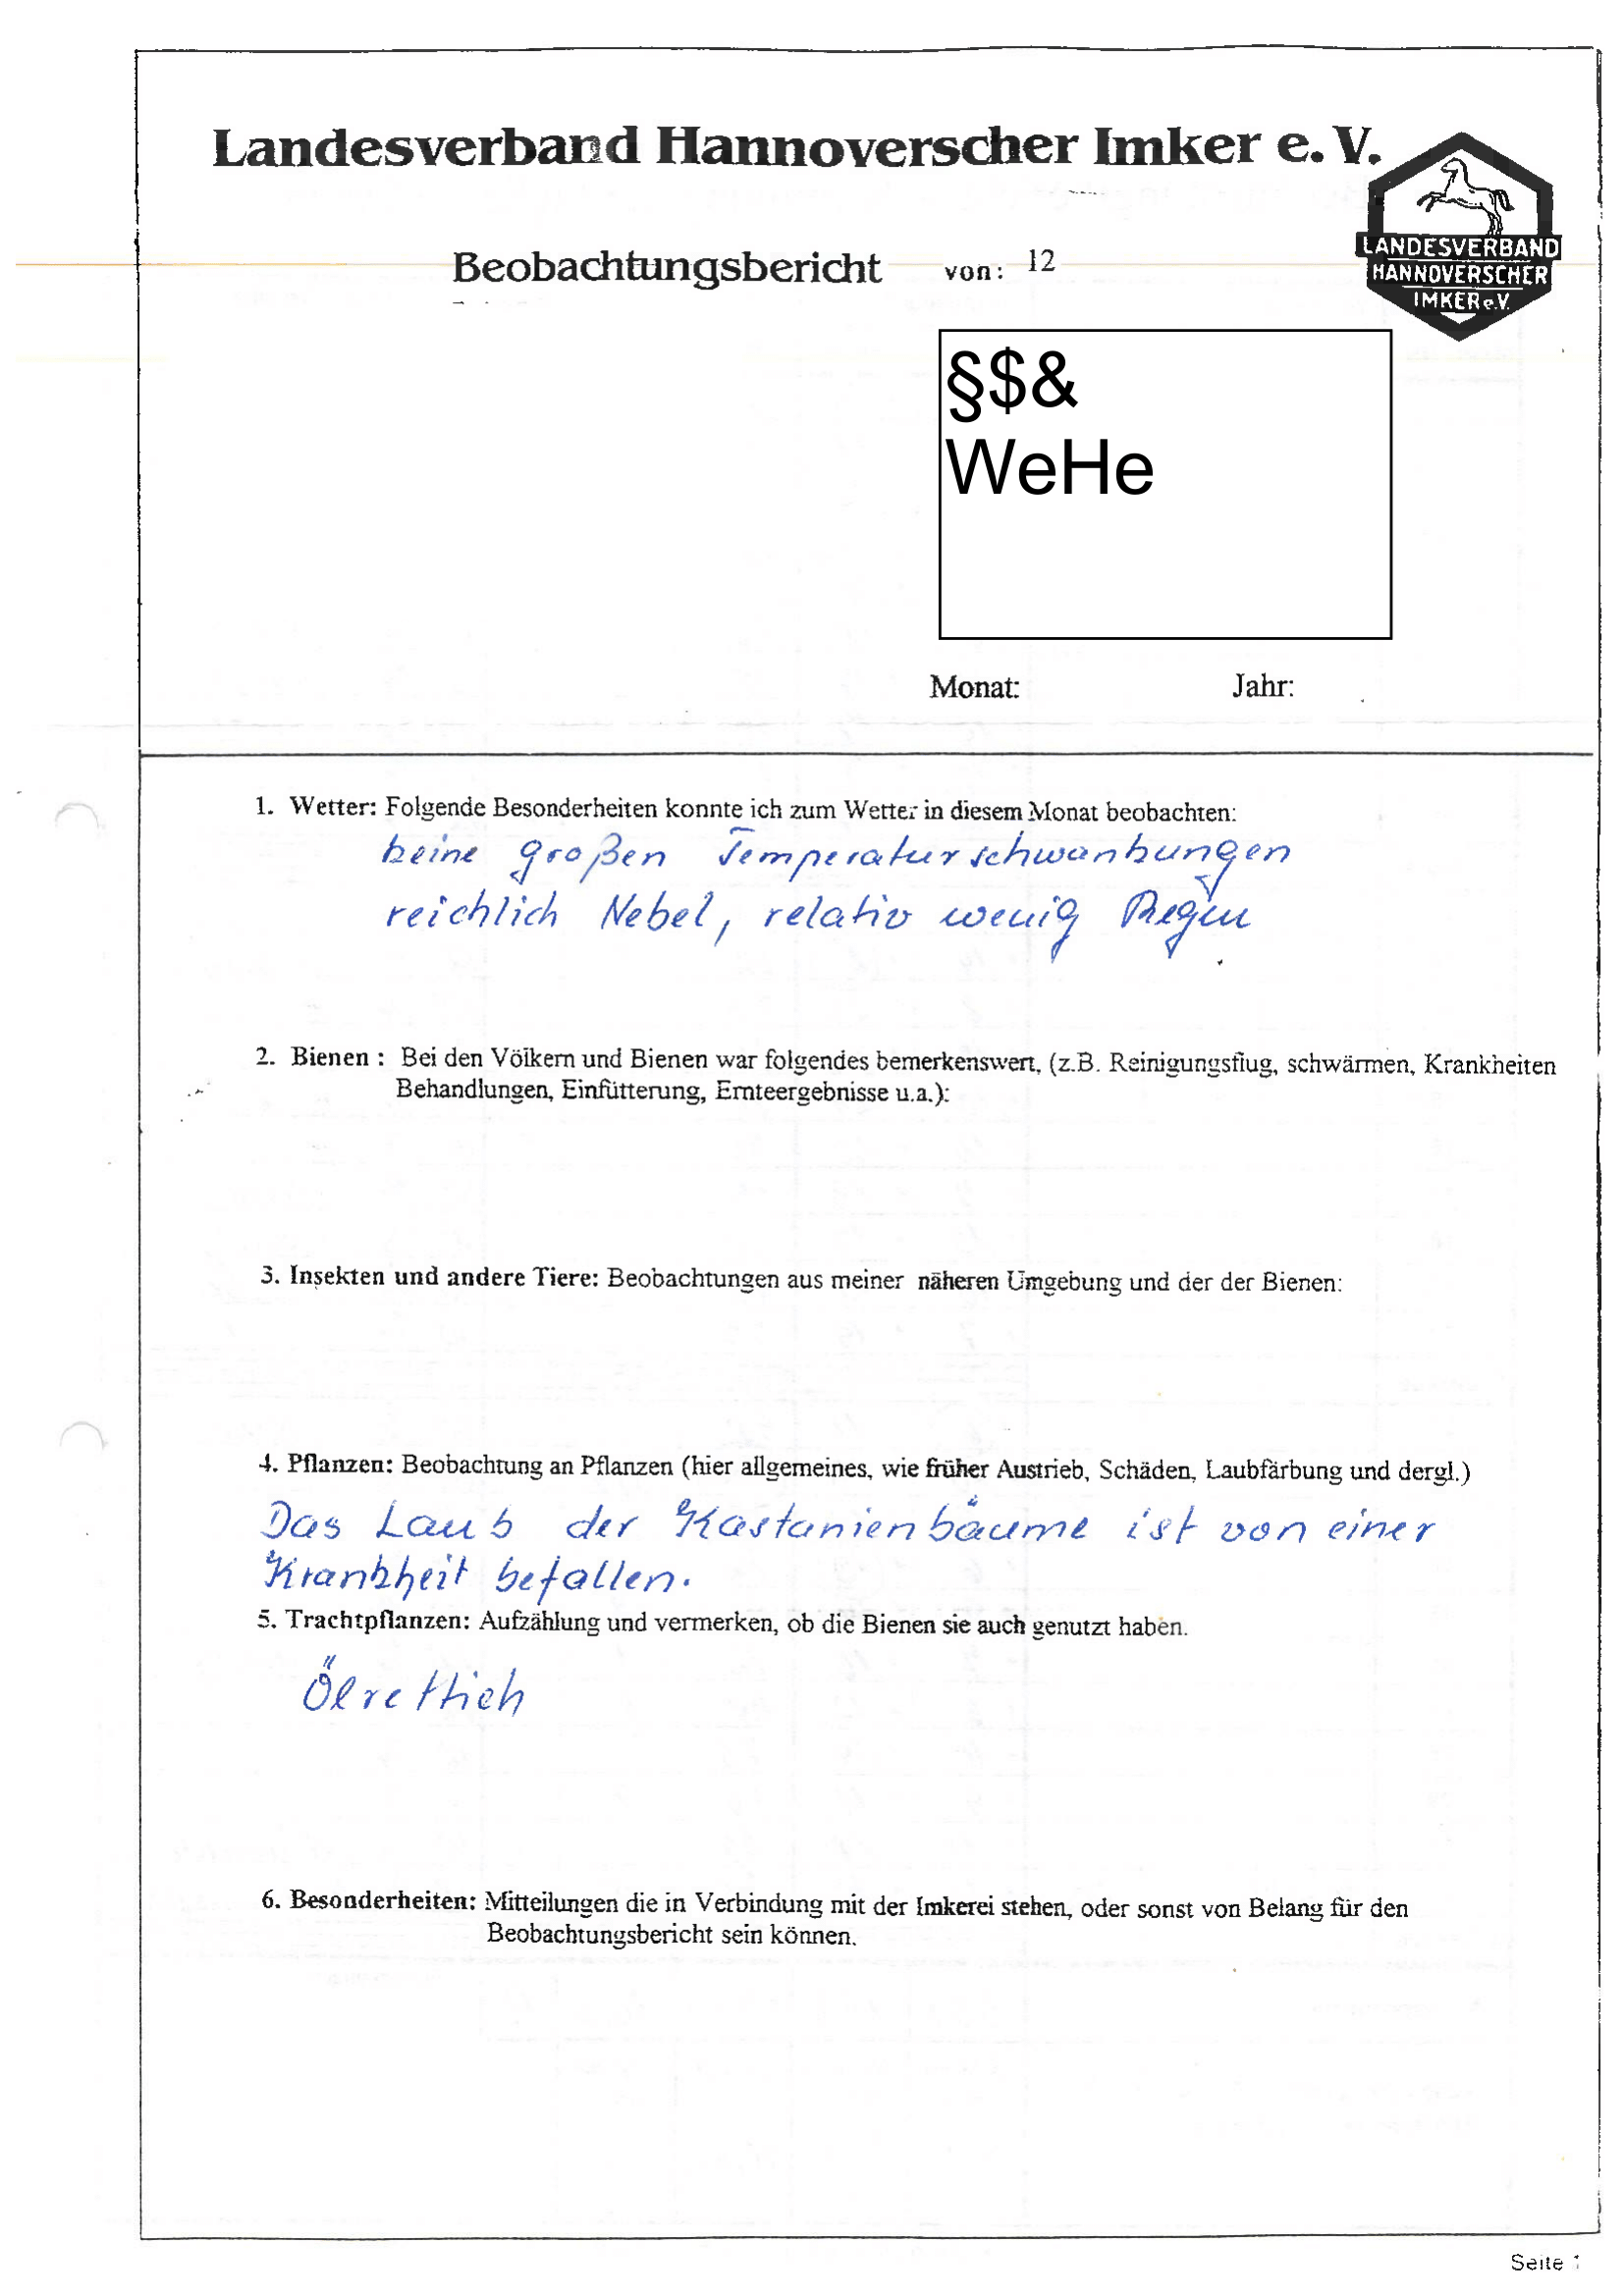 Landesverband Hannoverscher Imker e. V.
LANDESVERBAND
HANNOVERSCHER
IMKER e.V.
Beobachtungsbericht von: 12
§$&
WeHe
Monat: Jahr:
1. Wetter: Folgende Besonderheiten konnte ich zum Wetter in diesem Monat beobachten:
keine großen Temperaturschwankungen
reichlich Nebel, relativ wenig Regen
2. Bienen : Bei den Völkern und Bienen war folgendes bemerkenswert, (z.B. Reinigungsflug, schwärmen, Krankheiten
Behandlungen, Einfütterung, Ernteergebnisse u.a.):
3. Insekten und andere Tiere: Beobachtungen aus meiner näheren Umgebung und der der Bienen:
4. Pflanzen: Beobachtung an Pflanzen (hier allgemeines, wie früher Austrieb, Schäden, Laubfärbung und dergl.)
Das Laub der Kastanienbäume ist von einer
Krankheit befallen.
5. Trachtpflanzen: Aufzählung und vermerken, ob die Bienen sie auch genutzt haben.
Ölrettich
6. Besonderheiten: Mitteilungen die in Verbindung mit der Imkerei stehen, oder sonst von Belang für den
Beobachtungsbericht sein können.
Seite 1